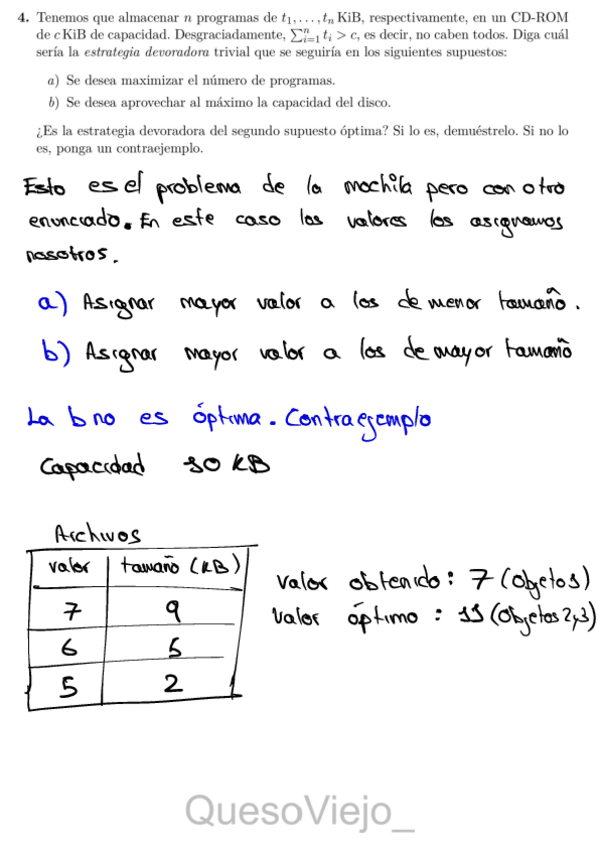 4. Tenemos que almacenar n programas de t₁, . . . , tₙ KiB, respectivamente, en un CD-ROM
de c KiB de capacidad. Desgraciadamente, ∑ⁿᵢ₌₁ tᵢ > c, es decir, no caben todos. Diga cuál
sería la estrategia devoradora trivial que se seguiría en los siguientes supuestos:
a) Se desea maximizar el número de programas.
b) Se desea aprovechar al máximo la capacidad del disco.
¿Es la estrategia devoradora del segundo supuesto óptima? Si lo es, demuéstrelo. Si no lo
es, ponga un contraejemplo.
Esto es el problema de la mochila pero con otro
enunciado. En este caso los valores los asignamos
nosotros.
a) Asignar mayor valor a los de menor tamaño.
b) Asignar mayor valor a los de mayor tamaño
La b no es óptima. Contraejemplo
Capacidad 10 KB
Archivos
valor tamaño (KB)
7 9
6 5
5 2
Valor obtenido: 7 (objeto 1)
Valor óptimo : 11 (Objetos 2y3)
QuesoViejo_